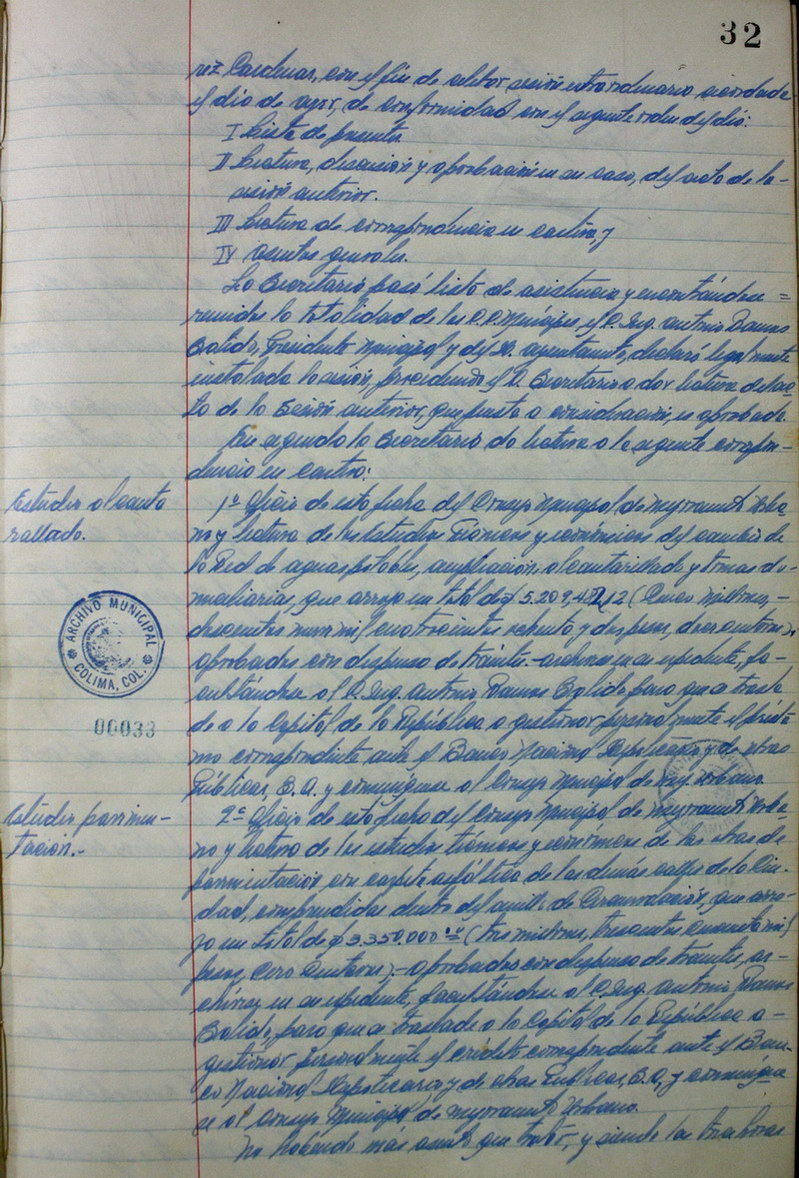 32
rez Cardenas, con el fin de celebrar sesión extraordinaria acordada
el día de ayer, de conformidad con el siguiente orden del día:
I Lista de presentes
II Lectura, discusión y aprobación en su caso, del acta de la
sesión anterior.
III Lectura de correspondencia en cartera, y
IV asuntos generales.
La Secretaría pasó lista de asistencia y encontrándose =
reunidos la totalidad de los C.C. Munícipes, el C. Ing. Antonio Ramos
Salido, Presidente Municipal y del H. ayuntamiento, declaró legalmente
instalada la sesión, procediendo el C. Secretario a dar lectura del ac-
ta de la Sesión anterior, que puesta a consideración, es aprobada.
En seguida la Secretaría da lectura a la siguiente correspon-
dencia en cartera:
Estudios alcanta
rallado.
1o. Oficio de esta fecha del Consejo Municipal de Mejoramiento Urba
no y lectura de los estudios Técnicos y económicos del cambio de
la Red de aguas potables, ampliación, alcantarillado y tomas do-
miciliarias, que arroja un total de $ 5.209,482.12 (Cinco millones, -
doscientos nueve mil cuatrocientos ochenta y dos pesos, doce centavos).
aprobados con dispensa de trámite.- archívese en su expediente, fa-
cultándose al C. Ing. Antonio Ramos Salido para que se trasla
de a la Capital de la República a gestionar personalmente el présta
mo correspondiente ante el Banco Nacional Hipotecario y de Obras
Públicas, S. A. y comuníquese al Consejo Municipal de Mej. Urbano.
ARCHIVO MUNICIPAL
COLIMA, COL.
00033
Estudios pavimen-
tación.-
2o. Oficio de esta fecha del Consejo Municipal de Mejoramiento Urba-
no y lectura de los estudios técnicos y económicos de las obras de
pavimentación con carpeta asfáltica de las demás calles de la Ciu-
dad, comprendidas dentro del anillo de Circunvalación, que arro-
ja un total de $ 3.350.000.00 (tres millones, trescientos cincuenta mil
pesos, Cero Centavos).- aprobados con dispensa de trámite, ar-
chívese en su expediente, facultándose al C. Ing. Antonio Ramos
Salido, para que se traslade a la Capital de la República a -
gestionar personalmente el crédito correspondiente ante el Ban-
co Nacional Hipotecario y de obras Públicas, S.A., y comuníque
se al Consejo Municipal de Mejoramiento Urbano.
No habiendo más asunto que tratar, y siendo las trece horas